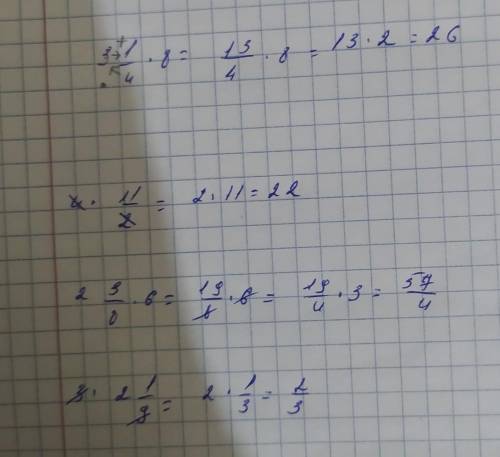 3 1/4 · 8 = 13/4 · 8 = 13 · 2 = 26
4 · 11/2 = 2 · 11 = 22
2 3/8 · 6 = 19/8 · 6 = 19/4 · 3 = 57/4
3 · 2 1/9 = 2 · 1/3 = 2/3